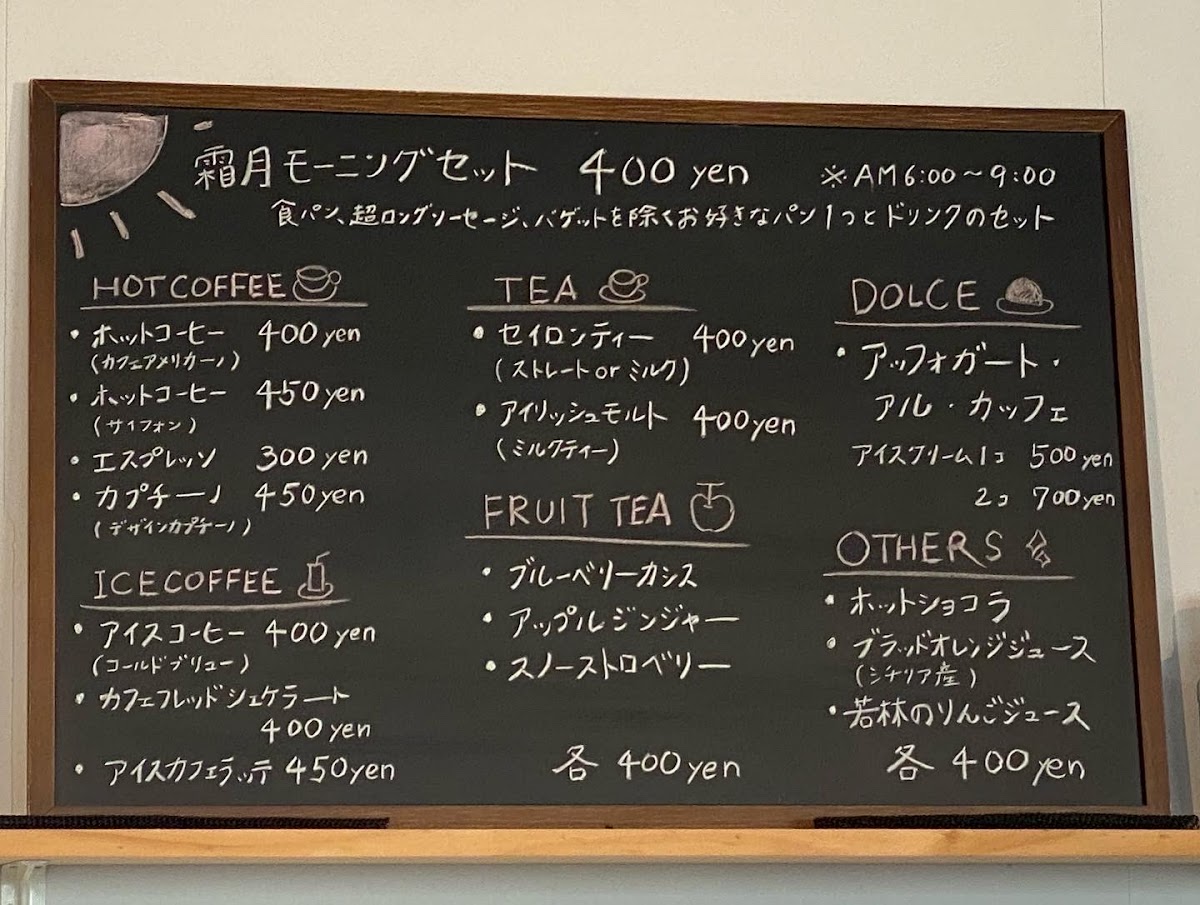 霜月モーニングセット 400 yen ※AM6:00～9:00
食パン、超ロングソーセージ、バゲットを除くお好きなパン1つとドリンクのセット
HOT COFFEE
・ホットコーヒー 400 yen
(カフェアメリカーノ)
・ホットコーヒー 450 yen
(サイフォン)
・エスプレッソ 300 yen
・カプチーノ 450 yen
(デザインカプチーノ)
ICE COFFEE
・アイスコーヒー 400 yen
(コールドブリュー)
・カフェフレッドシェケラート
400 yen
・アイスカフェラッテ 450 yen
TEA
・セイロンティー 400 yen
(ストレート or ミルク)
・アイリッシュモルト 400 yen
(ミルクティー)
FRUIT TEA
・ブルーベリーカシス
・アップルジンジャー
・スノーストロベリー
各 400 yen
DOLCE
・アッフォガート・
アル・カッフェ
アイスクリーム1コ 500 yen
2コ 700 yen
OTHERS
・ホットショコラ
・ブラッドオレンジジュース
(シチリア産)
・若林のりんごジュース
各 400 yen